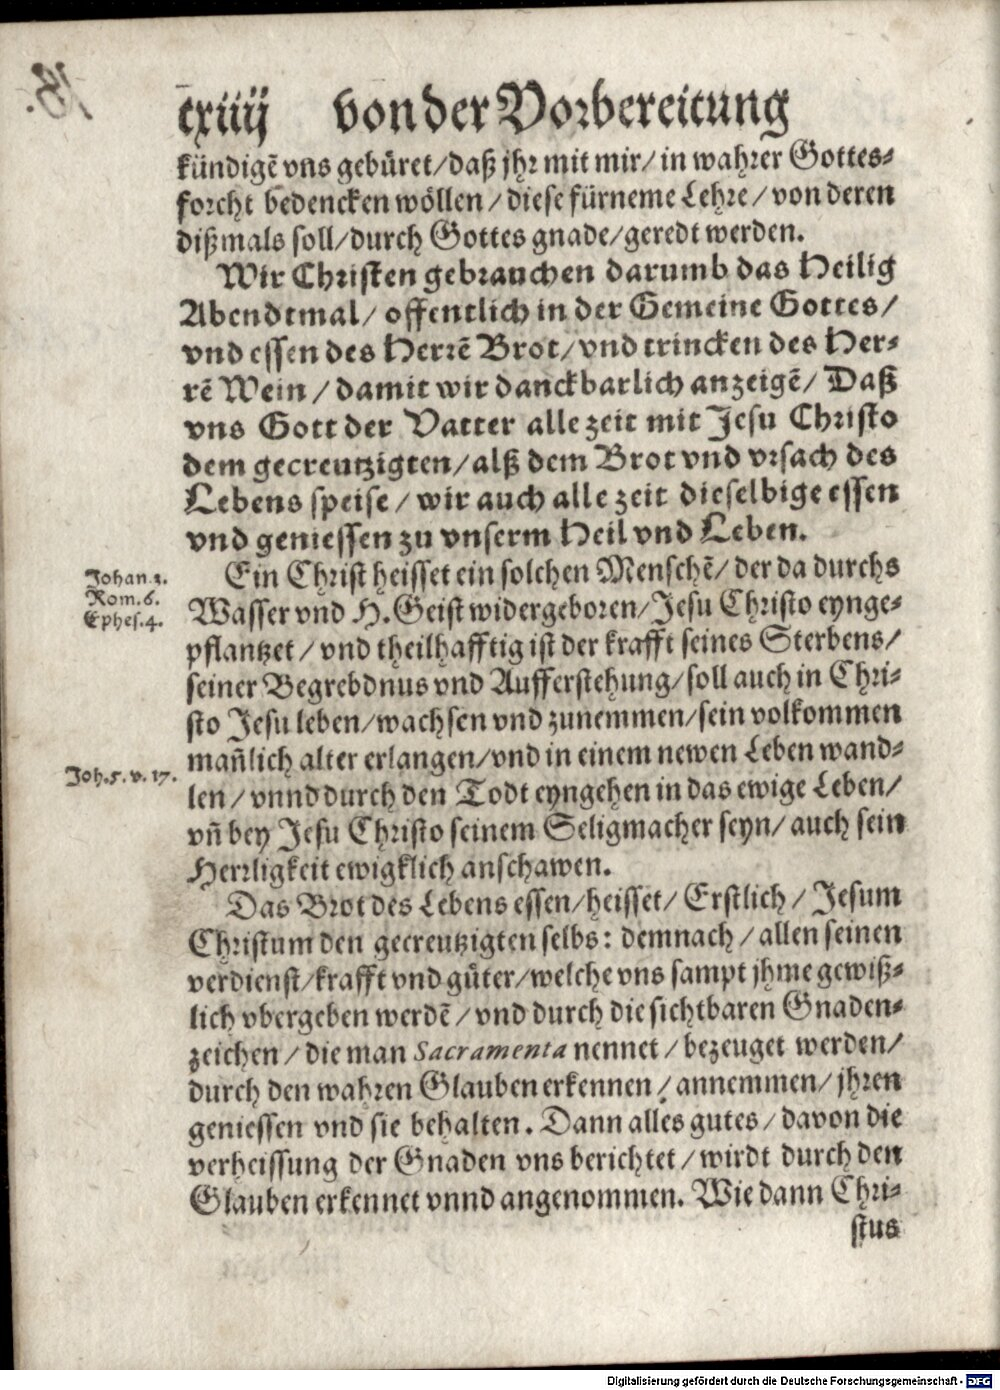 cxiiij von der Vorbereitung
kündigẽ vns gebüret/daß jhr mit mir/in wahrer Gottes-
forcht bedencken wöllen/diese fürneme Lehre/von deren
dißmals soll/durch Gottes gnade/geredt werden.
Wir Christen gebrauchen darumb das Heilig
Abendtmal/offentlich in der Gemeine Gottes/
vnd essen des Herrẽ Brot/vnd trincken des Her-
rẽ Wein/damit wir danckbarlich anzeigẽ/Daß
vns Gott der Vatter alle zeit mit Jesu Christo
dem gecreutzigten/alß dem Brot vnd vrsach des
Lebens speise/wir auch alle zeit dieselbige essen
vnd geniessen zu vnserm Heil vnd Leben.
Johan.3.
Rom.6.
Ephes.4.
Ein Christ heisset ein solchen Menschẽ/der da durchs
Wasser vnd H.Geist widergeboren/Jesu Christo eynge-
pflantzet/vnd theilhafftig ist der krafft seines Sterbens/
seiner Begrebdnus vnd Aufferstehung/soll auch in Chri-
sto Jesu leben/wachsen vnd zunemmen/sein volkommen
mañlich alter erlangen/vnd in einem newen Leben wand-
Joh.5.v.17.
len/vnnd durch den Todt eyngehen in das ewige Leben/
vñ bey Jesu Christo seinem Seligmacher seyn/auch sein
Herrligkeit ewigklich anschawen.
Das Brot des Lebens essen/heisset/Erstlich/Jesum
Christum den gecreutzigten selbs: demnach/allen seinen
verdienst/krafft vnd güter/welche vns sampt jhme gewiß-
lich vbergeben werdẽ/vnd durch die sichtbaren Gnaden-
zeichen/die man Sacramenta nennet/bezeuget werden/
durch den wahren Glauben erkennen/annemmen/jhren
geniessen vnd sie behalten. Dann alles gutes/davon die
verheissung der Gnaden vns berichtet/wirdt durch den
Glauben erkennet vnnd angenommen. Wie dann Chri-
stus
Digitalisierung gefördert durch die Deutsche Forschungsgemeinschaft - DFG